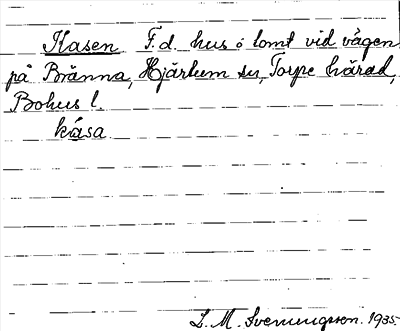 Kasen F.d. hus o lomt vid vägen
på Bränna, Hjärtum sn, Torpe härad,
Bohus l.
kåsa
L. M. Svenungsson. 1935